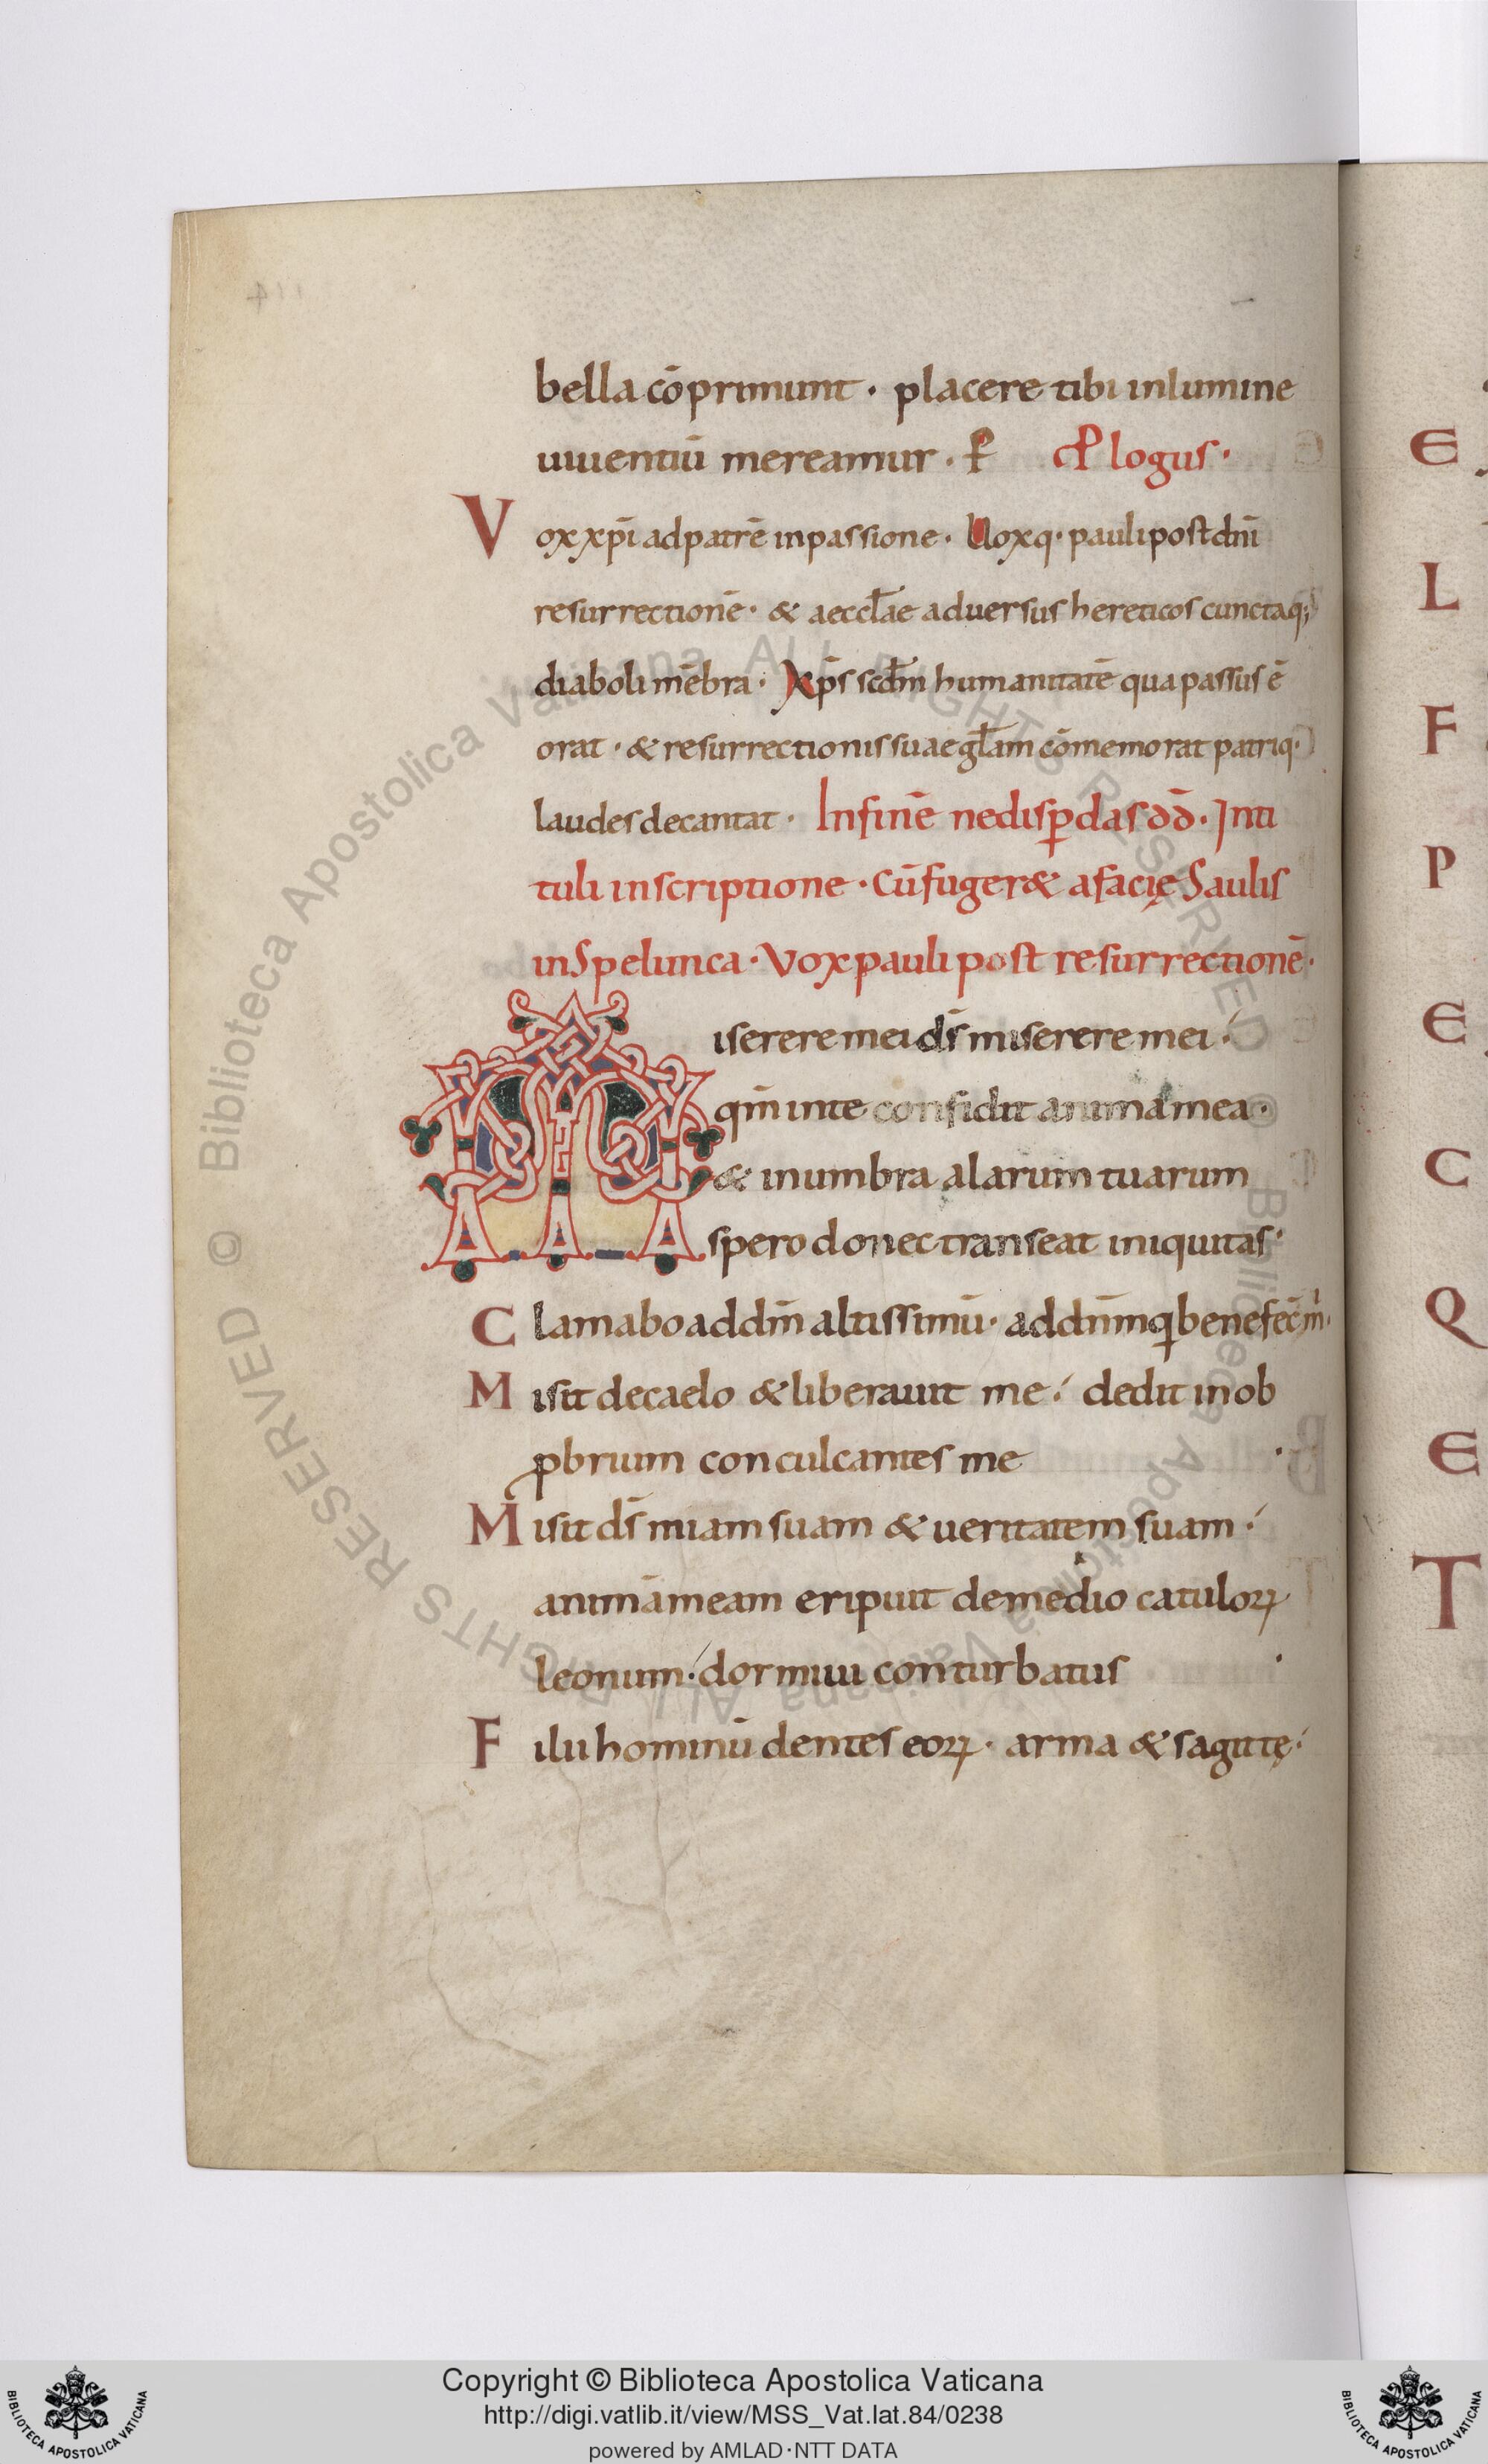 bella cōprimunt · placere tibi in lumine
uiuentiū mereamur · P̄ Plogus ·
Vox xp̄i ad patrē in passione · Uoxq· pauli post dn̄i
resurrectionē · & aeccl̄ae aduersus hereticos cunctaq;
diaboli mēbra · Xp̄s scd̄m humanitatē qua passus ē
orat · & resurrectionis suae gl̄am cōmemorat patriq·
laudes decantat · In finē ne disꝑdas dd̄ · In ti
tuli inscriptione · Cū fuger& a facię Saulis
in Spelunca · Vox pauli post resurrectionē ·
Miserere mei ds̄ miserere mei ·
qm̄ in te confidit anima mea ·
& in umbra alarum tuarum
spero donec transeat iniquitas ·
Clamabo ad dm̄ altissimū · ad dn̄m qui benefec̄ m ·
Misit de caelo & liberauit me · dedit in ob
ꝓbrium conculcantes me
Misit ds̄ miam suam & ueritatem suam ·
animā meam eripuit de medio catuloꝝ
leonum · dormiui conturbatus
Filii hominū dentes eoꝝ · arma & sagittę ·
E
L
F
P
E
C
Q
E
T
114
Biblioteca Apostolica Vaticana ALL RIGHTS RESERVED © Biblioteca Apostolica Vaticana ALL RIGHTS RESERVED ©
Copyright © Biblioteca Apostolica Vaticana
http://digi.vatlib.it/view/MSS_Vat.lat.84/0238
powered by AMLAD·NTT DATA
BIBLIOTECA APOSTOLICA VATICANA
BIBLIOTECA APOSTOLICA VATICANA